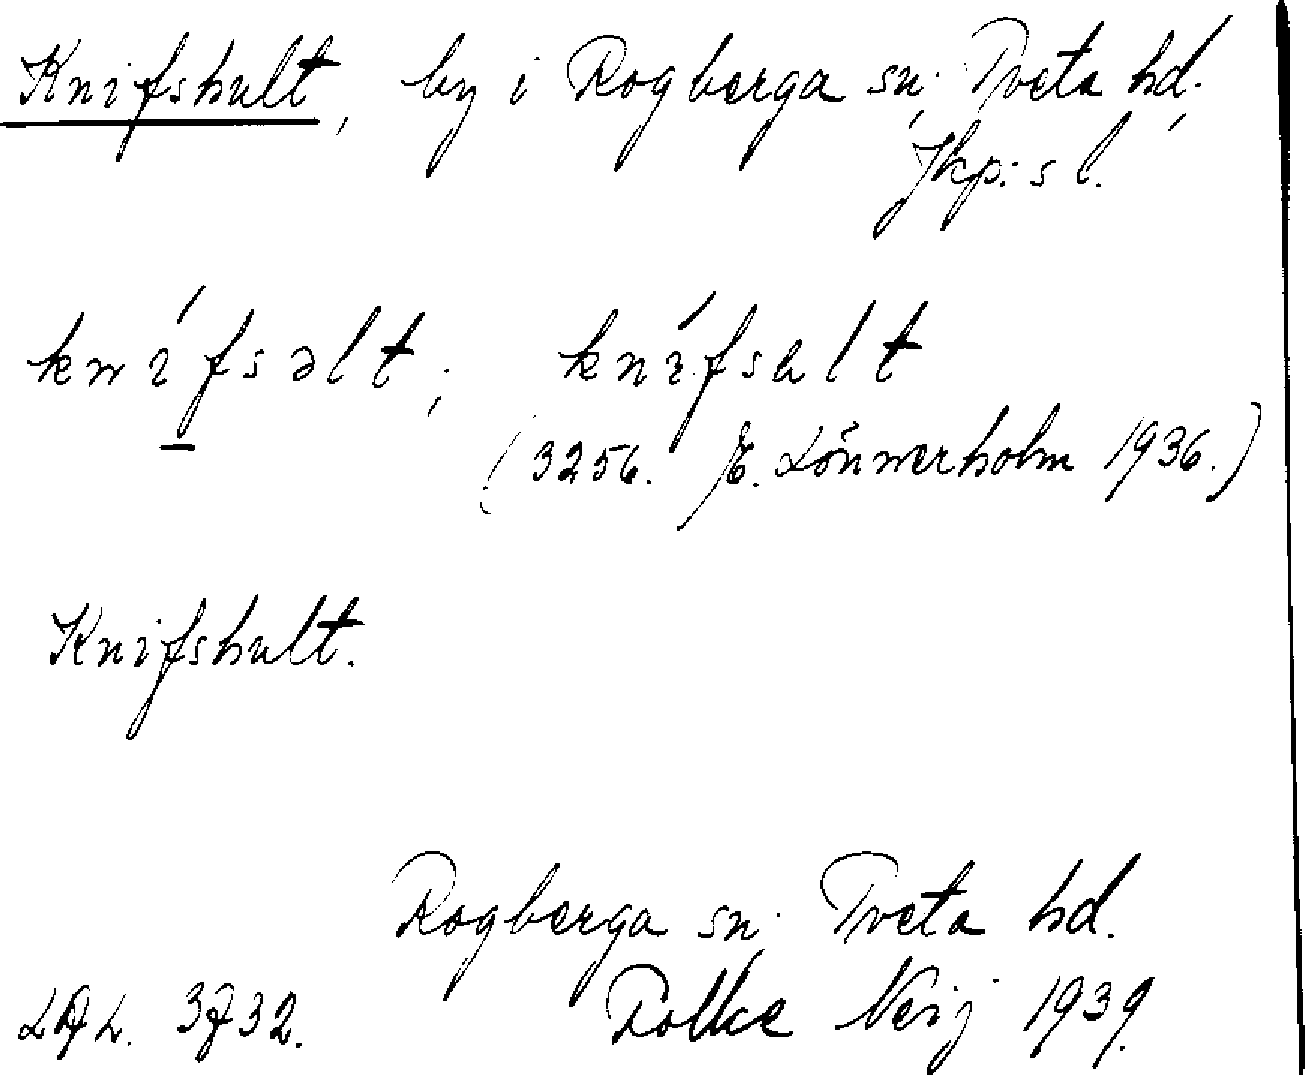 Knifshult, by i Rogberga sn, Tveta hd,
Jkp:s l.
knífsəlt; knífsalt
(3256. E. Lönnerholm 1936.)
Knifshult.
Rogberga sn. Tveta hd.
3732. Folke Neij 1939.